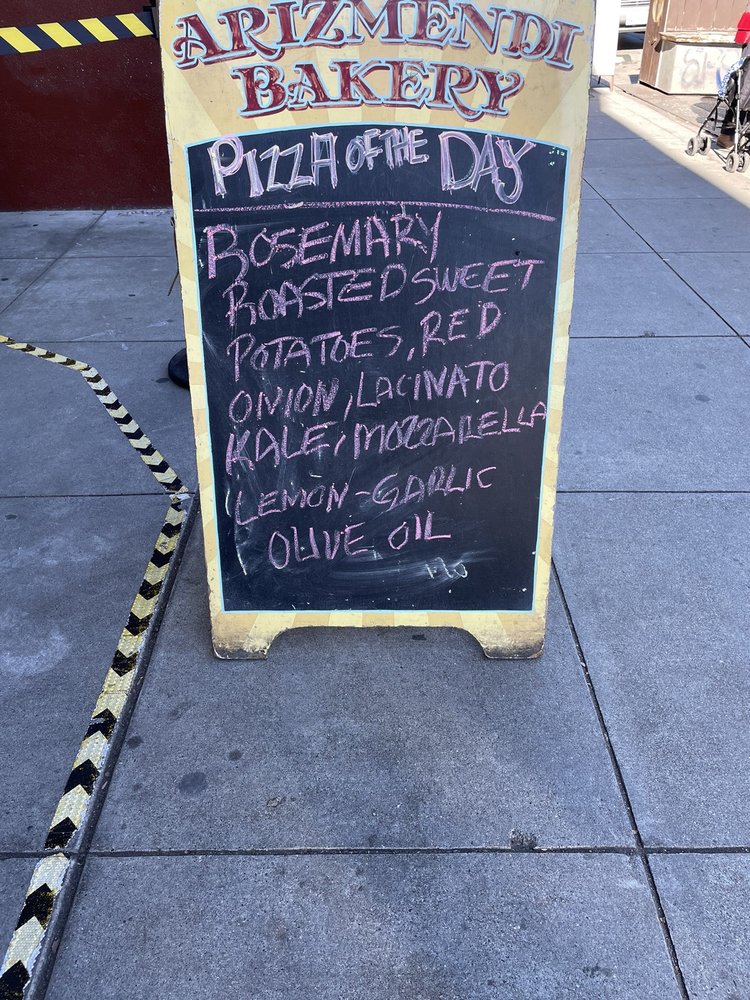 ARIZMENDI
BAKERY
PIZZA OF THE DAY
ROSEMARY
ROASTED SWEET
POTATOES, RED
ONION, LACINATO
KALE, MOZZARELLA
LEMON-GARLIC
OLIVE OIL